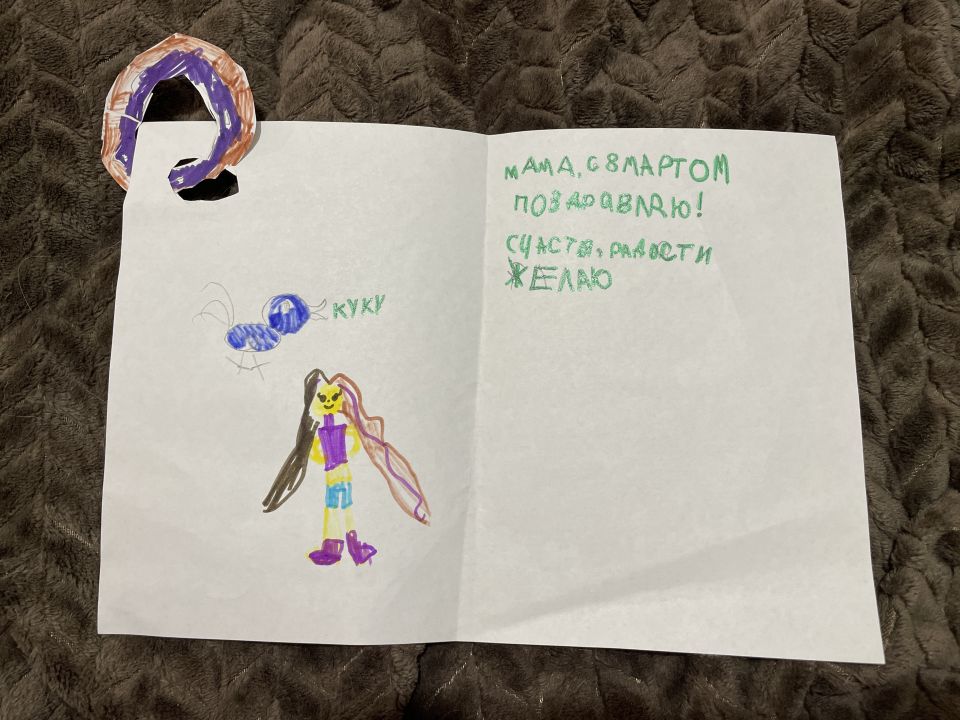 КУКУ
МАМА, С 8 МАРТОМ
ПОЗДРАВЛЯЮ!
СЧАСТЯ, РАДОСТИ
ЖЕЛАЮ